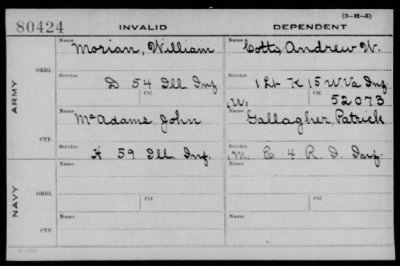 (3-H-3)
80424 INVALID DEPENDENT
Name Name
Morian, William Cotts, Andrew W.
ARMY
ORIG.
Service Service
D 54 Ill Inf 1 Lt K 15 W Va Inf
Ctf. Ctf.
W. 52073
Name Name
McAdams John Gallagher, Patrick
CTF.
Service Service
K 59 Ill. Inf. M. E 4 R. I. Inf.
NAVY
ORIG.
Name Name
Service Service
Ctf. Ctf.
CTF.
Name Name
Service Service